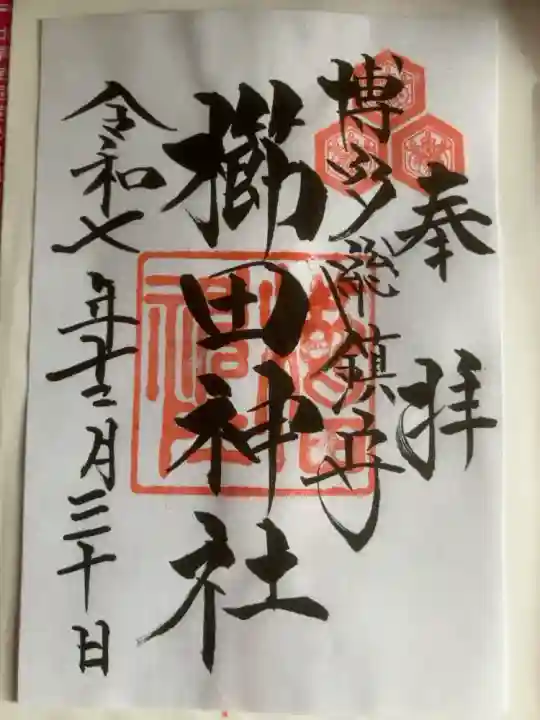 奉拝
博多総鎮守
櫛田神社
令和七年十二月三十日